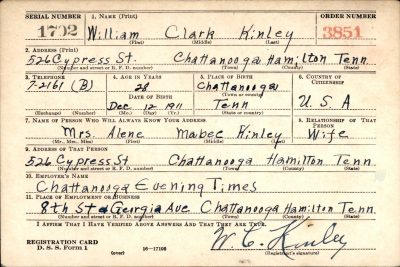 SERIAL NUMBER 1. NAME (Print) ORDER NUMBER
1702 William Clark Kinley 3851
(First) (Middle) (Last)
2. ADDRESS (Print)
526 Cypress St. Chattanooga Hamilton Tenn.
(Number and street or R. F. D. number) (Town) (County) (State)
3. TELEPHONE 4. AGE IN YEARS 5. PLACE OF BIRTH 6. COUNTRY OF CITIZENSHIP
7-2161 (B) 28 Chattanooga
(Town or county)
DATE OF BIRTH
Dec 12 1911 Tenn U. S. A
(Exchange) (Number) (Mo.) (Day) (Yr.) (State or country)
7. NAME OF PERSON WHO WILL ALWAYS KNOW YOUR ADDRESS 8. RELATIONSHIP OF THAT PERSON
Mrs. Alene Kinley Wife
(Mr., Mrs., Miss) (First) (Middle) (Last)
9. ADDRESS OF THAT PERSON
526 Cypress St Chattanooga Hamilton Tenn.
(Number and street or R. F. D. number) (Town) (County) (State)
10. EMPLOYER'S NAME
Chattanooga Evening Times
11. PLACE OF EMPLOYMENT OR BUSINESS
8th St & Georgia Ave Chattanooga Hamilton Tenn
(Number and street or R. F. D. number) (Town) (County) (State)
I AFFIRM THAT I HAVE VERIFIED ABOVE ANSWERS AND THAT THEY ARE TRUE.
W. C. Kinley
REGISTRATION CARD
D. S. S. Form 1 (over) 16-17105 (Registrant's signature)